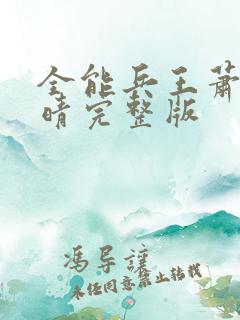 全能兵王萧
晴完整版
冯导谨
未经同意禁止转载